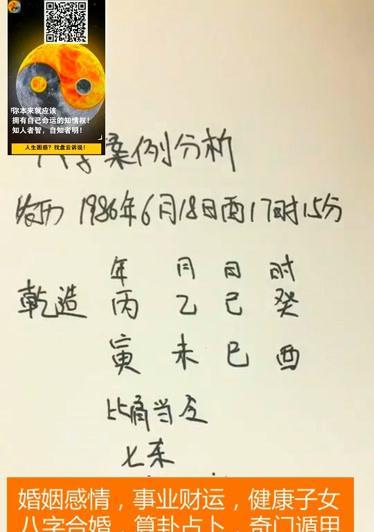 你本来就应该
拥有自己命运的知情权!
知人者智,自知者明!
人生困惑?找盘云诉说!
八字案例分析
农历 1986年6月18日酉17时15分
年 月 日 时
乾造 丙 乙 己 癸
寅 未 巳 酉
七杀
婚姻感情，事业财运，健康子女
八字合婚，算卦占卜，奇门遁甲